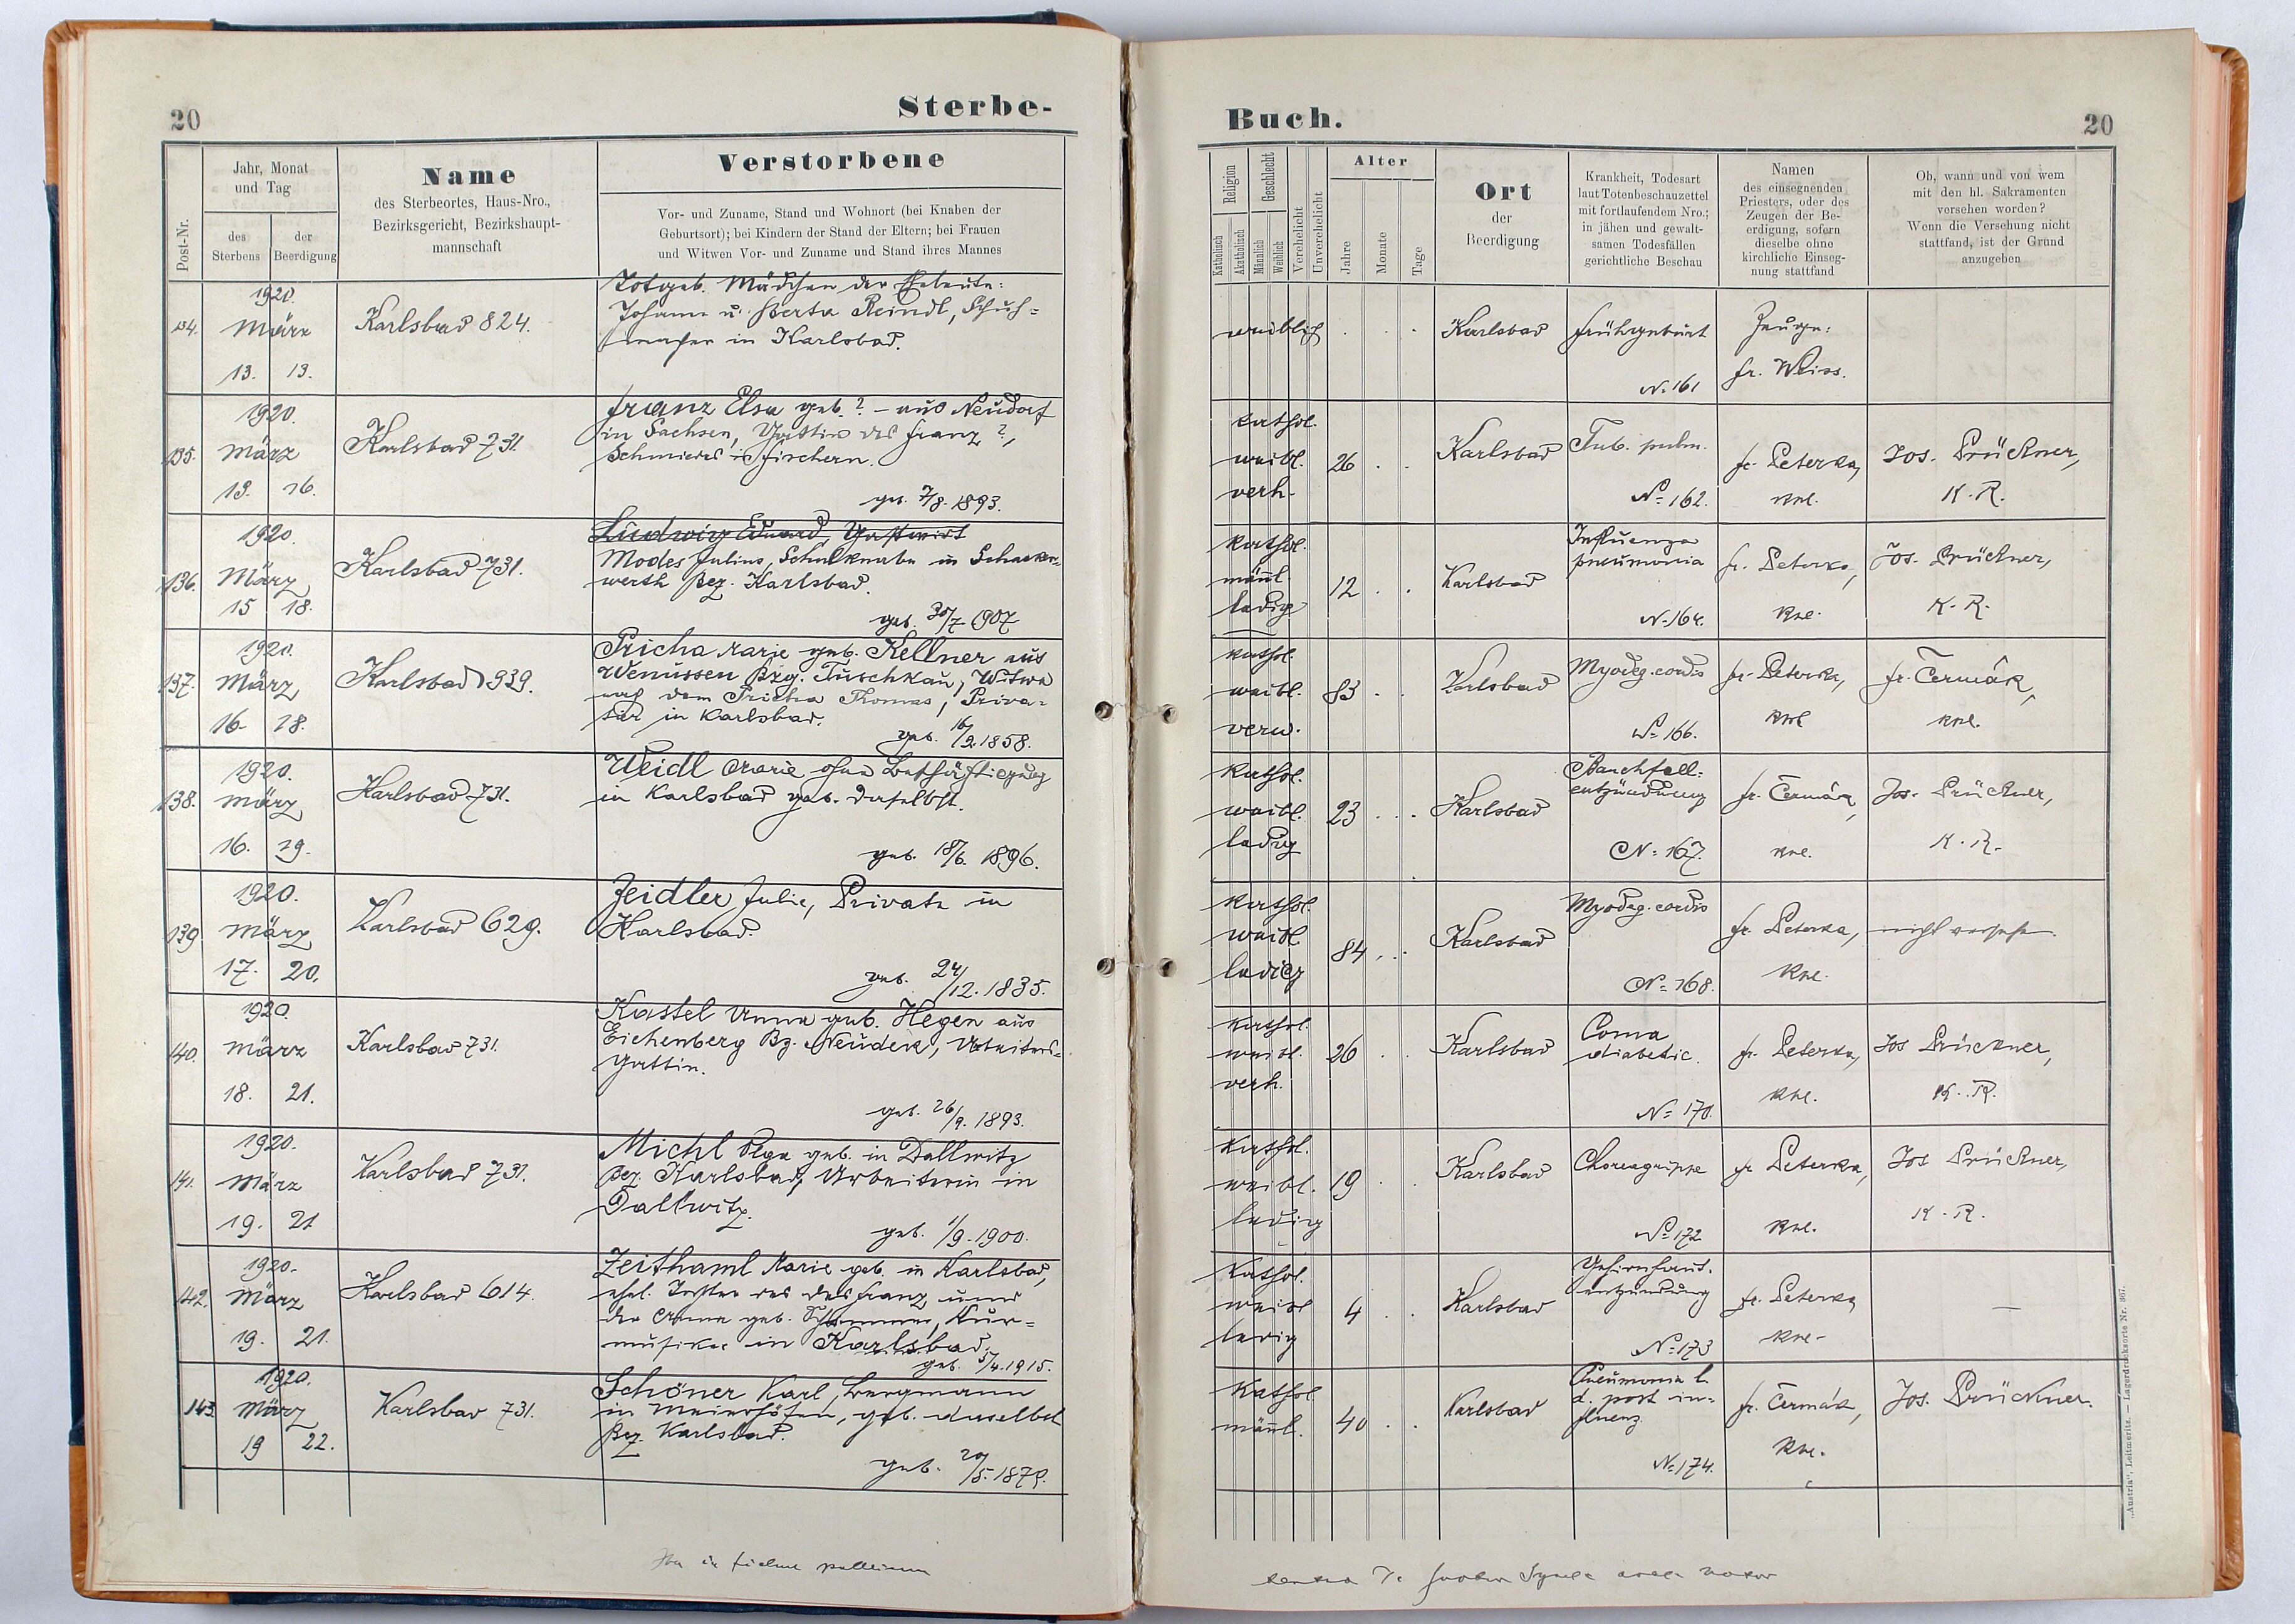 20
Sterbe-
Jahr, Monat
und Tag
Name
Verstorbene
des Sterbeortes, Haus-Nro.,
Bezirksgericht, Bezirkshaupt-
mannschaft
Vor- und Zuname, Stand und Wohnort (bei Knaben der
Geburtsort); bei Kindern der Stand der Eltern; bei Frauen
und Witwen Vor- und Zuname und Stand ihres Mannes
Post-Nr.
des
Sterbens
der
Beerdigung
1920.
März
13. 13.
Karlsbad 824.
Totgeb. Mädchen der Eheleute:
Johann u. Berta Reindl, Schuh=
macher in Karlsbad.
135.
1920.
März
13. 16.
Karlsbad 731.
Franz Elsa geb. ? - aus Neudorf
in Sachsen, Gattin des Franz ?,
Schmiedes in Fischern.
geb. 7/8. 1893.
136.
1920.
März
15 18.
Karlsbad 731.
Ludwig Eduard, Gastwirt
Modes Julius, Schulknabe in Schacken-
werth Bez. Karlsbad.
geb. 30/7. 1907
137.
1920.
März
16. 18.
Karlsbad 939.
Pricha Marie geb. Kellner aus
Wenussen Bzg. Tuschkau, Witwe
nach dem Pricha Thomas, Priva=
tier in Karlsbad.
geb. 16/2. 1858.
138.
1920.
März
16. 19.
Karlsbad 731.
Weidl Marie ohne Beschäftigung
in Karlsbad geb. daselbst.
geb. 18/6. 1896.
139
1920.
März
17. 20.
Karlsbad 629.
Zeidler Julie, Private in
Karlsbad.
geb. 24/12. 1835.
140.
1920.
März
18. 21.
Karlsbad 731.
Kastel Anna geb. Hegen aus
Eichenberg Bz. Neudek, Arbeiters-
Gattin.
geb. 26/9. 1893.
141.
1920.
März
19. 21
Karlsbad 731.
Michl Olga geb. in Dallwitz
Bez. Karlsbad, Arbeiterin in
Dallwitz.
geb. 1/9. 1900.
142.
1920.
März
19. 21.
Karlsbad 614.
Zeithaml Marie geb. in Karlsbad,
ehel. Tochter des Franz und
der Anna geb. Kur=
musiker in Karlsbad.
geb. 5/4. 1915.
143
1920.
März
19 22.
Karlsbad 731.
Schöner Karl, Bergmann
in Meierhöfen, geb. daselbst
Bez. Karlsbad.
geb. 20/5. 1879.
Buch.
20
Religion
Katholisch
Akatholisch
Geschlecht
Männlich
Weiblich
Verehelicht
Unverehelicht
Alter
Jahre
Monate
Tage
Ort
der
Beerdigung
Krankheit, Todesart
laut Totenbeschauzettel
mit fortlaufendem Nro.;
in jähen und gewalt-
samen Todesfällen
gerichtliche Beschau
Namen
des einsegnenden
Priesters, oder des
Zeugen der Be-
erdigung, sofern
dieselbe ohne
kirchliche Einseg-
nung stattfand
Ob, wann und von wem
mit den hl. Sakramenten
versehen worden?
Wenn die Versehung nicht
stattfand, ist der Grund
anzugeben
weiblich
Karlsbad
Frühgeburt
N= 161
Zeuge:
Fr. Weiss.
kathol.
weibl.
verh.
26
Karlsbad
Tub. pulm.
N= 162.
fr. Peterka,
kne.
Jos. Prückner,
K. R.
kathol.
männl.
ledig
12
Karlsbad
Influenza
pneumonia
N= 164.
fr. Peterka,
kne.
Jos. Prückner,
K. R.
kathol.
weibl.
verw.
83
Karlsbad
Myodeg. cordis
N= 166.
fr. Peterka,
kne
fr. Čermák,
kne.
Kathol.
weibl.
ledig
23
Karlsbad
Bauchfell-
entzündung
N= 167.
fr. Čermák,
kne.
Jos. Prückner,
K. R.
Kathol.
weibl
ledig
84
Karlsbad
Myodeg. cordis
N= 168.
fr. Peterka,
kne.
nicht versehen.
kathol.
weibl.
verh.
26
Karlsbad
Coma
diabetic.
N= 170.
fr. Peterka,
kne.
Jos Prückner,
K. R.
Kathol.
weibl.
ledig
19
Karlsbad
Choreagrippe
N= 172
fr Peterka,
kne.
Jos Prückner,
K. R.
Kathol.
weibl
ledig
4
Karlsbad
Gehirnhaut-
entzündung
N= 173
fr. Peterka
kne-
—
Kathol
männl.
40
Karlsbad
Pneumonia l.
d. post in-
fluenz
N= 174.
fr. Čermák,
kne.
Jos. Prückner.
„Austria", Leitmeritz. — Lagerdrucksorte Nr. 367.